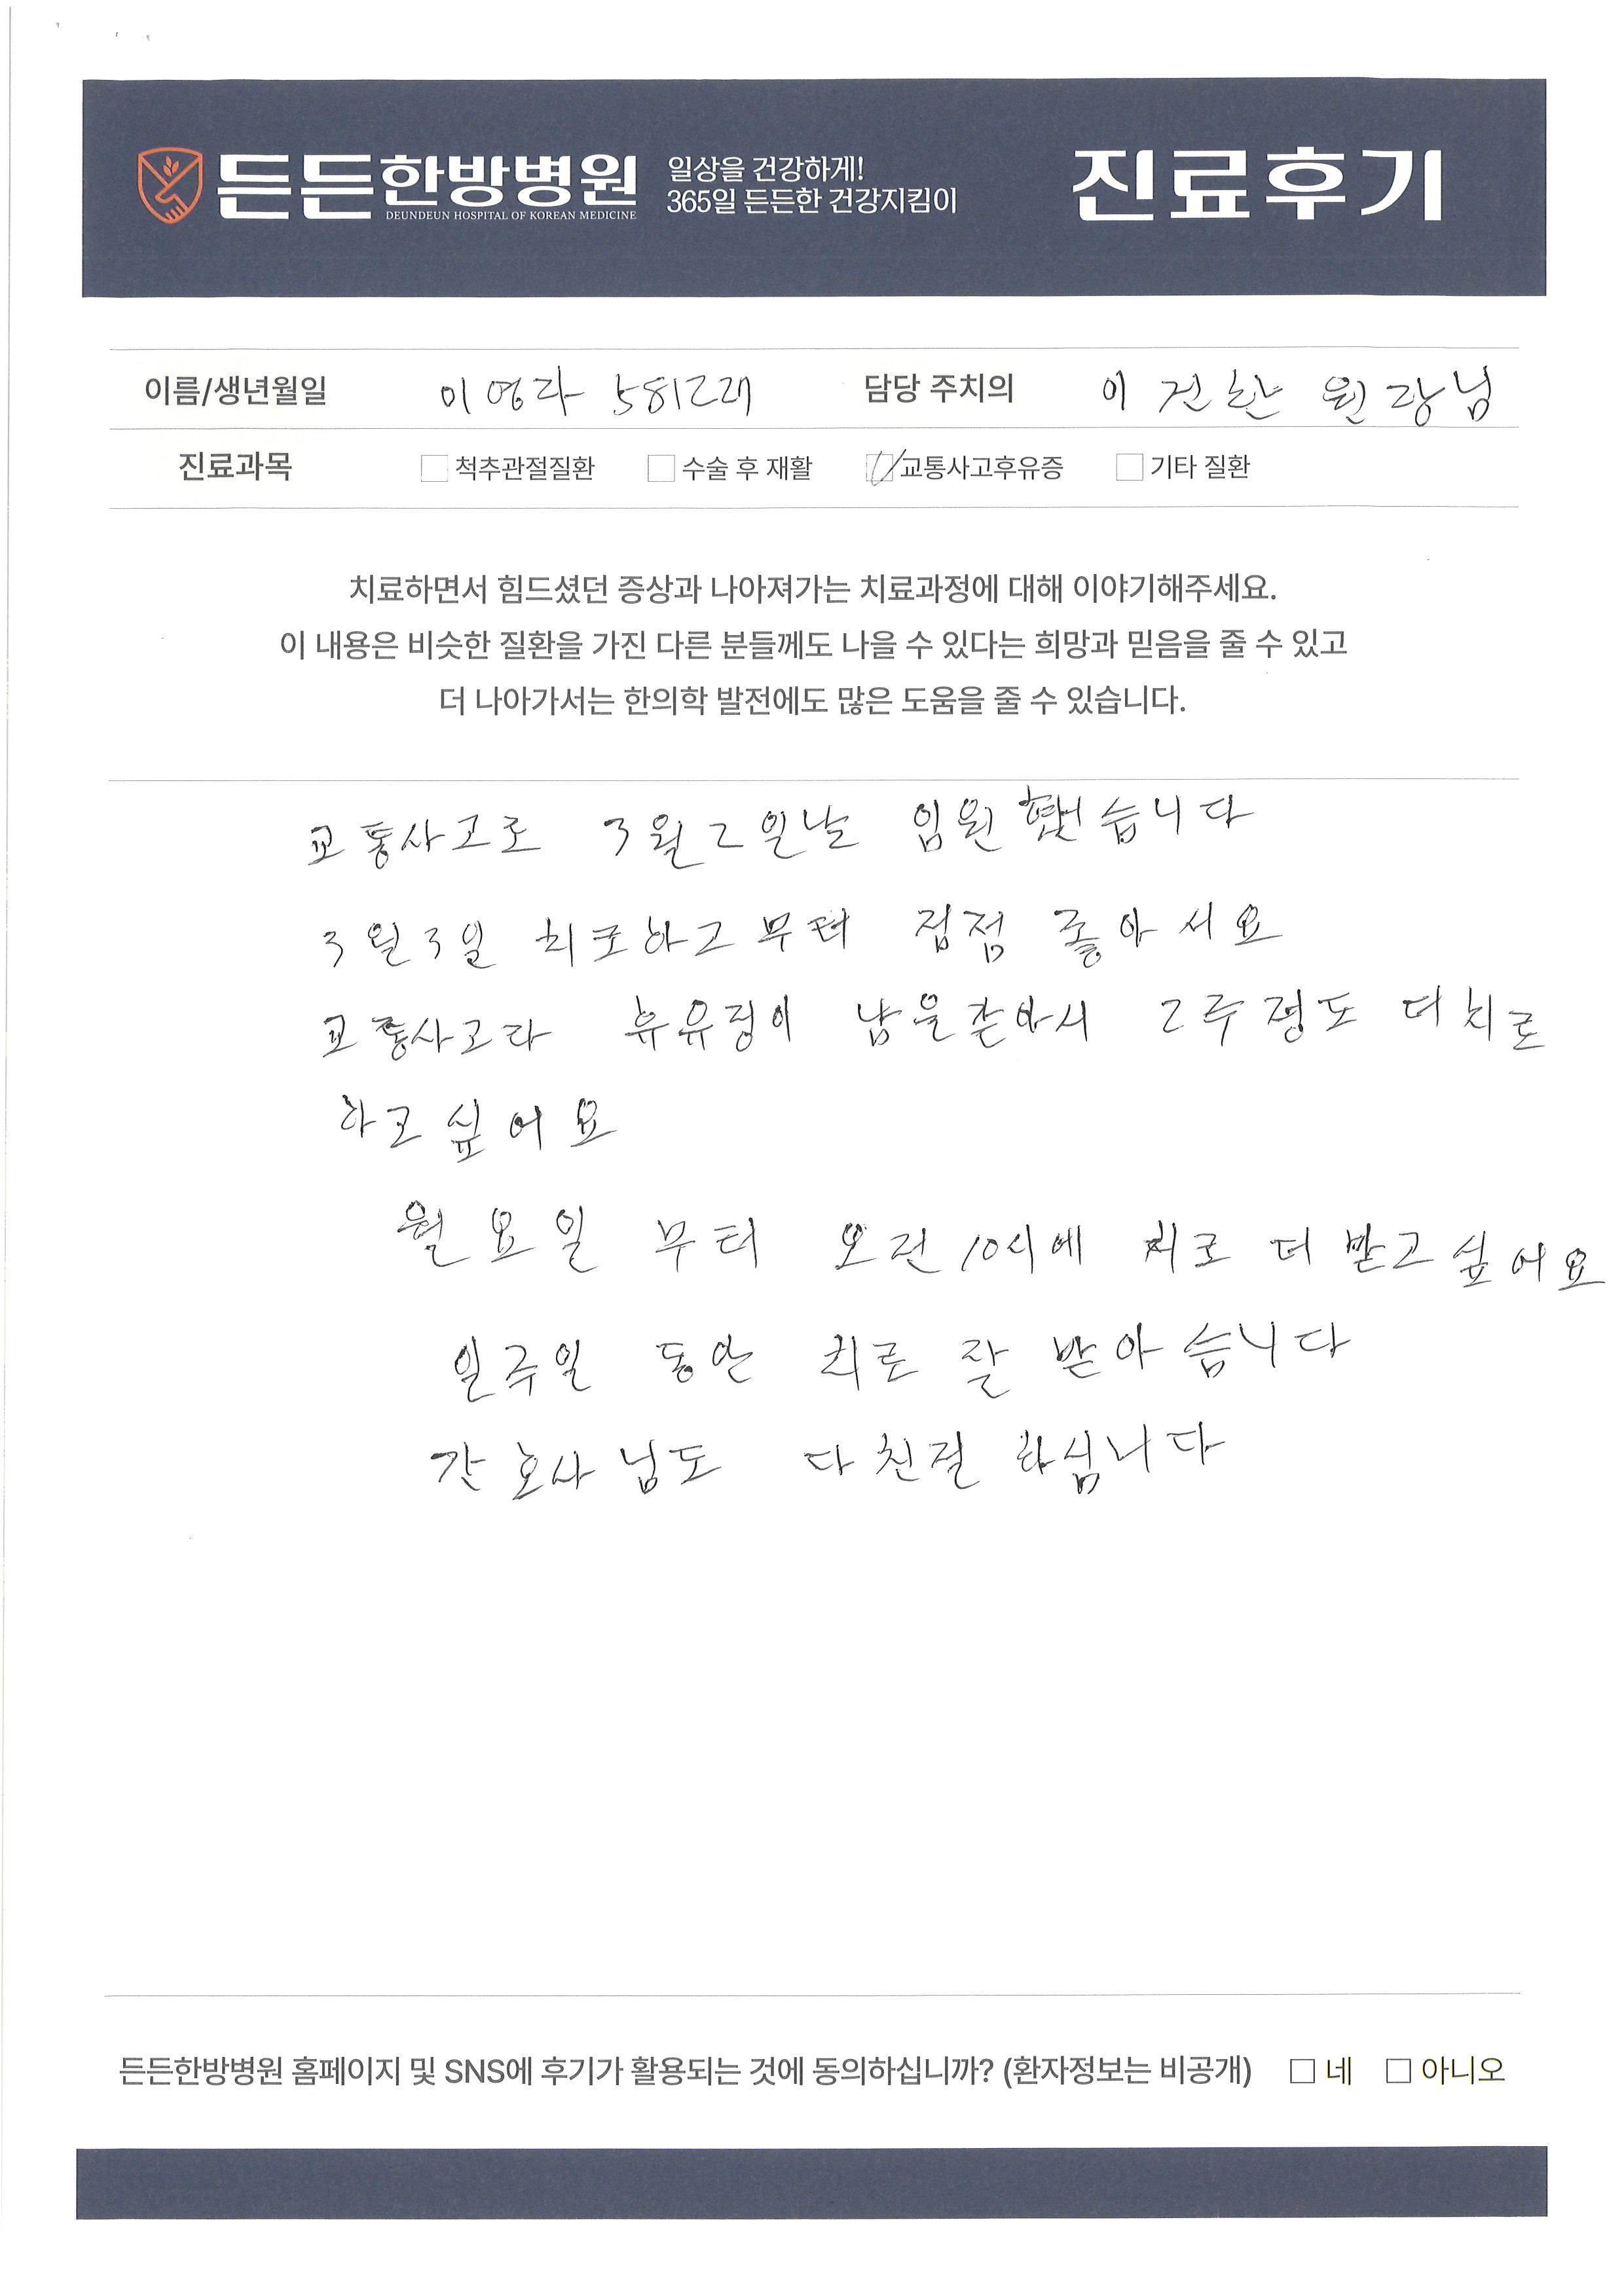 든든한방병원
DEUNDEUN HOSPITAL OF KOREAN MEDICINE
일상을 건강하게!
365일 든든한 건강지킴이
진료후기
이름/생년월일 이영자 담당 주치의 이건환 원장님
진료과목 척추관절질환 수술 후 재활 교통사고후유증 기타 질환
치료하면서 힘드셨던 증상과 나아져가는 치료과정에 대해 이야기해주세요.
이 내용은 비슷한 질환을 가진 다른 분들께도 나을 수 있다는 희망과 믿음을 줄 수 있고
더 나아가서는 한의학 발전에도 많은 도움을 줄 수 있습니다.
교통사고로 3월2일날 입원 했습니다
3월3일 치로하고부터 점점 좋아서요
교통사고라 휴유정이 남을같아서 2주정도 더치로
하고싶어요
월요일 부터 오전10시에 치로 더 받고싶어요
일주일 동안 치로 잘 받아습니다
간호사님도 다친절 하십니다
든든한방병원 홈페이지 및 SNS에 후기가 활용되는 것에 동의하십니까? (환자정보는 비공개) 네 아니오